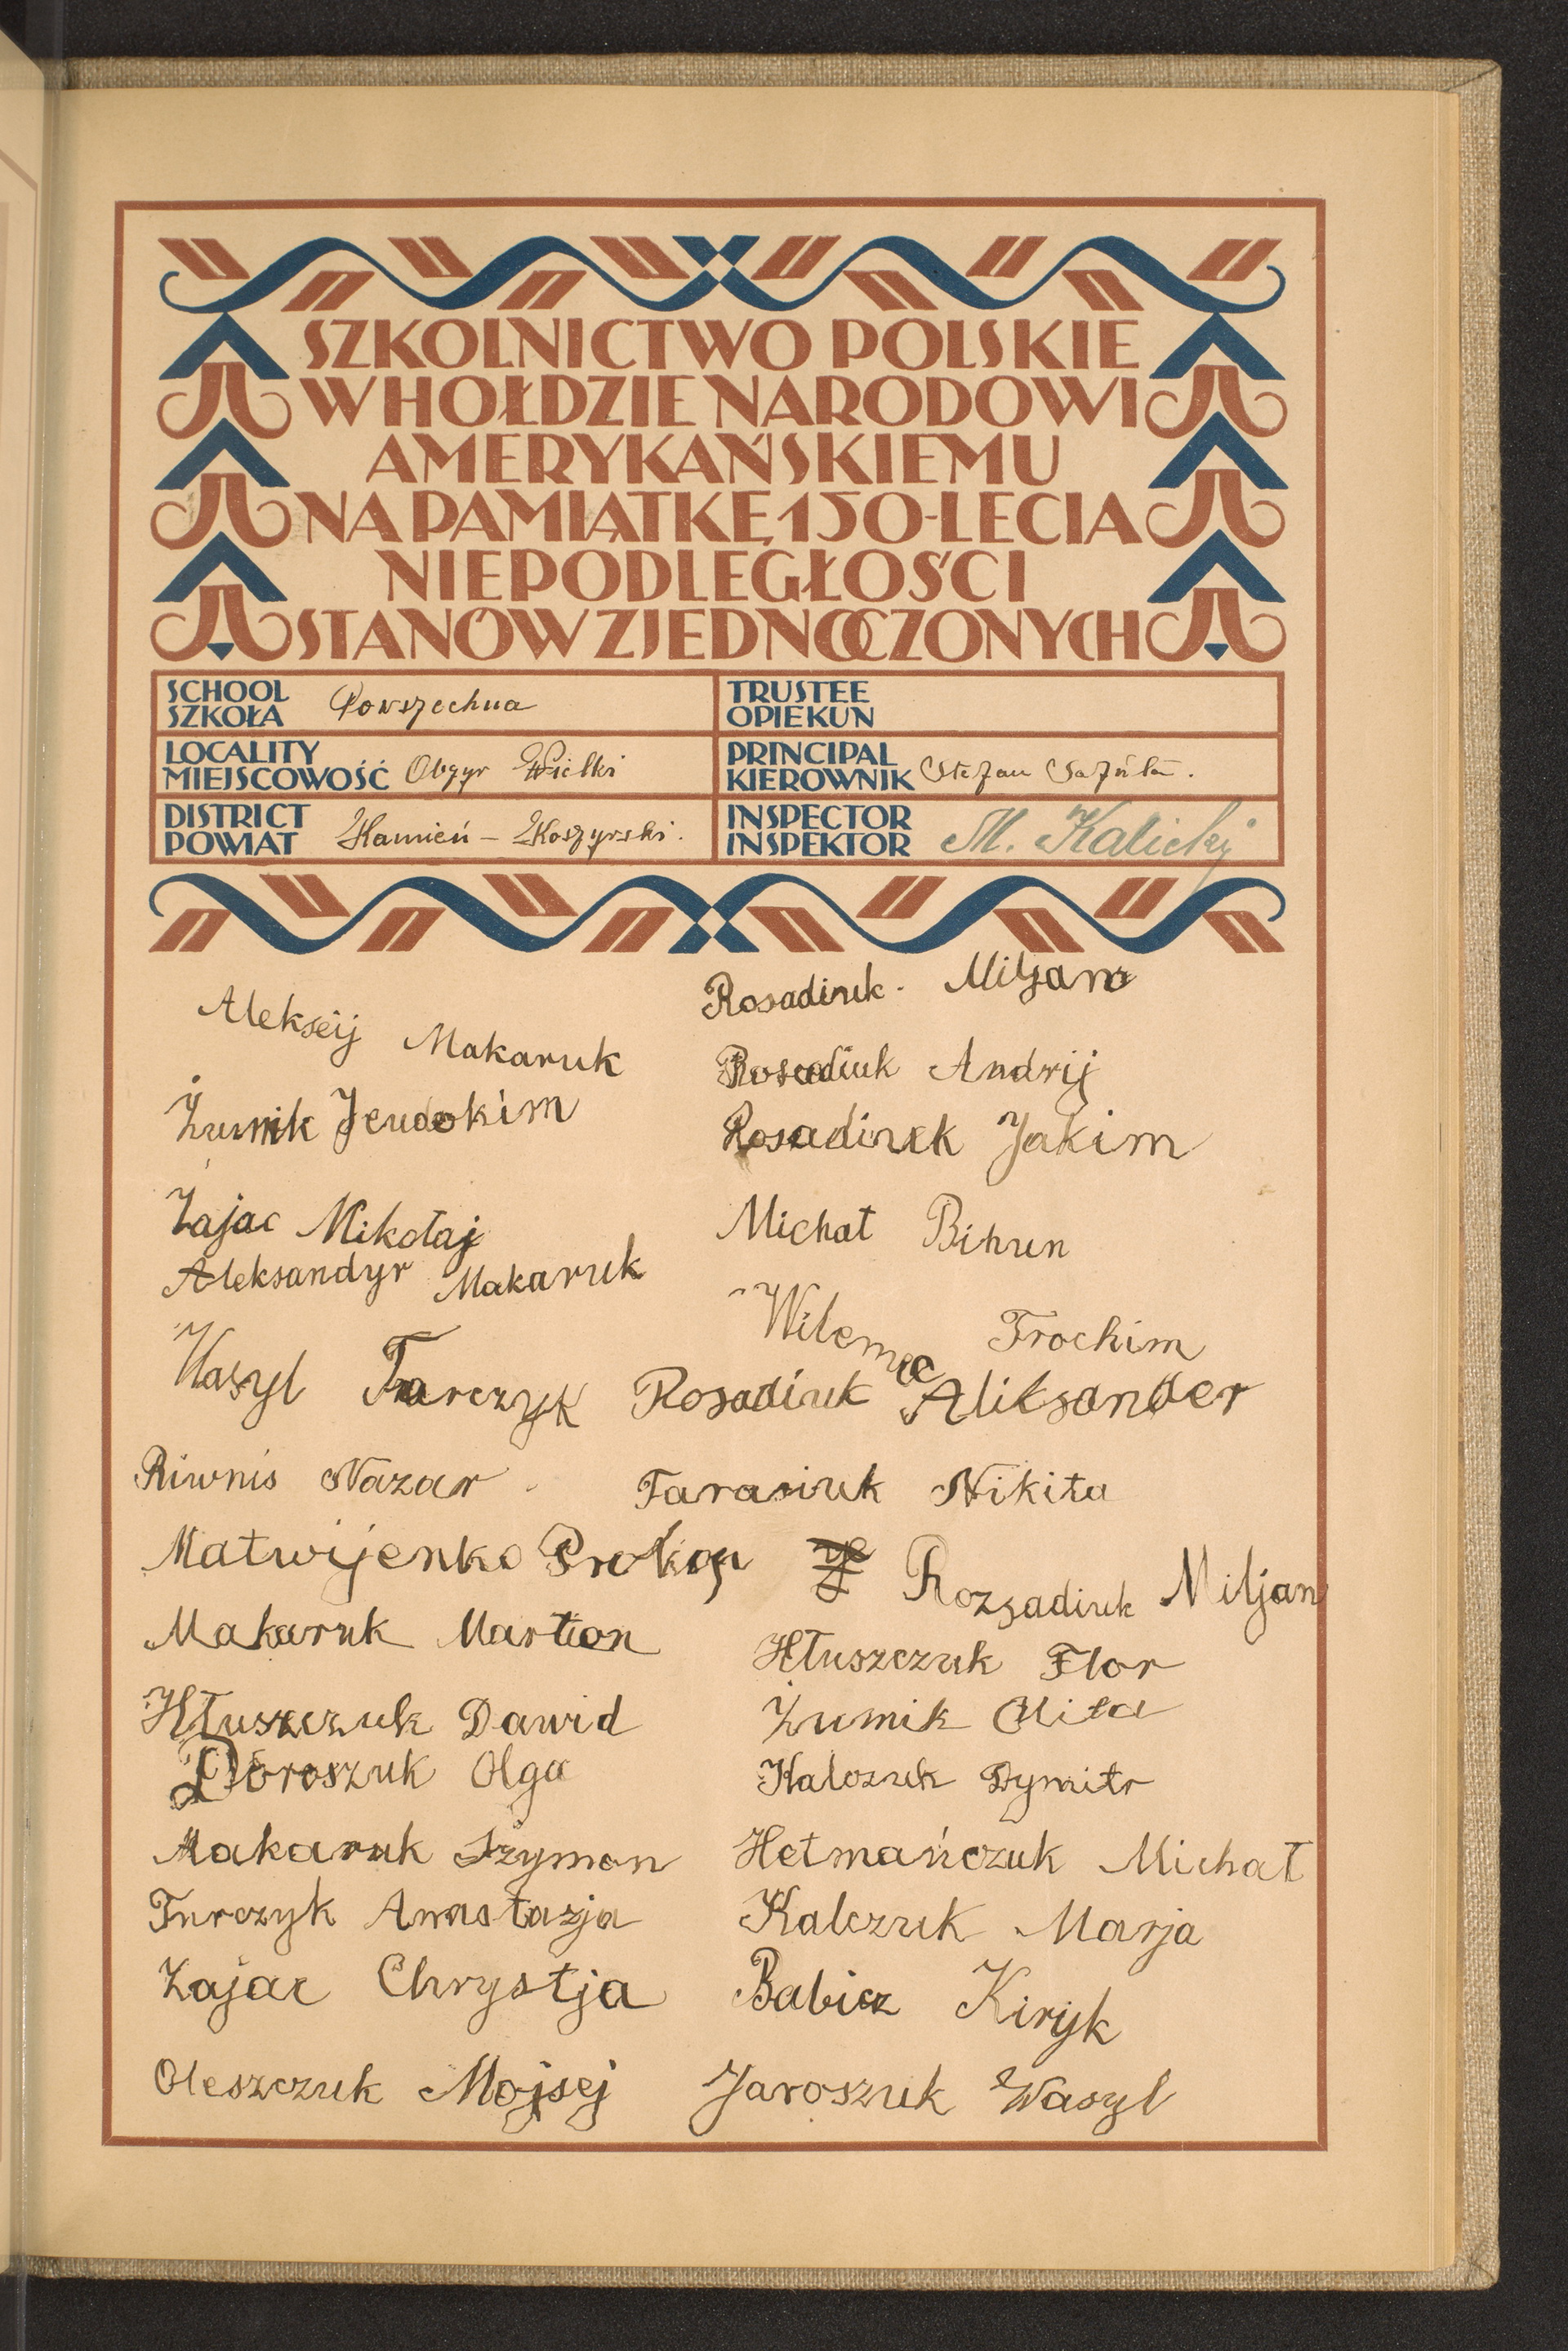 SZKOLNICTWO POLSKIE
W HOŁDZIE NARODOWI
AMERYKAŃSKIEMU
NA PAMIĄTKĘ 150-LECIA
NIEPODLEGŁOŚCI
STANÓW ZJEDNOCZONYCH
SCHOOL
SZKOŁA Powszechna
TRUSTEE
OPIEKUN
LOCALITY
MIEJSCOWOŚĆ Obzyr Wielki
PRINCIPAL
KIEROWNIK Stefan
DISTRICT
POWIAT Kamień - Koszyrski.
INSPECTOR
INSPEKTOR M. Kalicki
Alekseij Makaruk
Żumik Jeudokim
Zajac Mikołaj
Aleksandyr Makaruk
Wasyl Tarczyk
Riwnis Nazar
Matwijenko Prokop
Makaruk Martion
Hłuszczuk Dawid
Doroszuk Olga
Makaruk Szymon
Turczyk Anastazja
Zajac Chrystja
Oleszczuk Mojsej
Rosadiuk Miljan
Rosadiuk Andrij
Rosadiuk Jakim
Michał Bihun
Wilemec Trochim
Rosadiuk Aliksander
Tarasiuk Nikita
Rozsadiuk Miljan
Hłuszczuk Flor
Żumik
Kalczuk Dymitr
Hetmańczuk Michał
Kalczuk Marja
Babicz Kiryk
Jaroszuk Wasyl